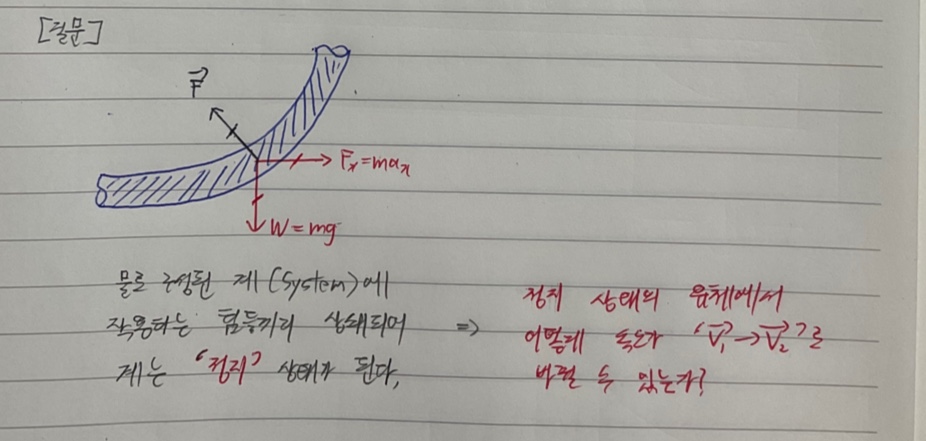 [질문]
F⃗
Fx = max
W = mg
물로 구성된 계(System)에
작용하는 힘들끼리 상쇄되어
계는 '정지' 상태가 된다.
⇒ 정지 상태의 유체에서
어떻게 속도가 'V⃗₁→V⃗₂'로
바뀔 수 있는가?